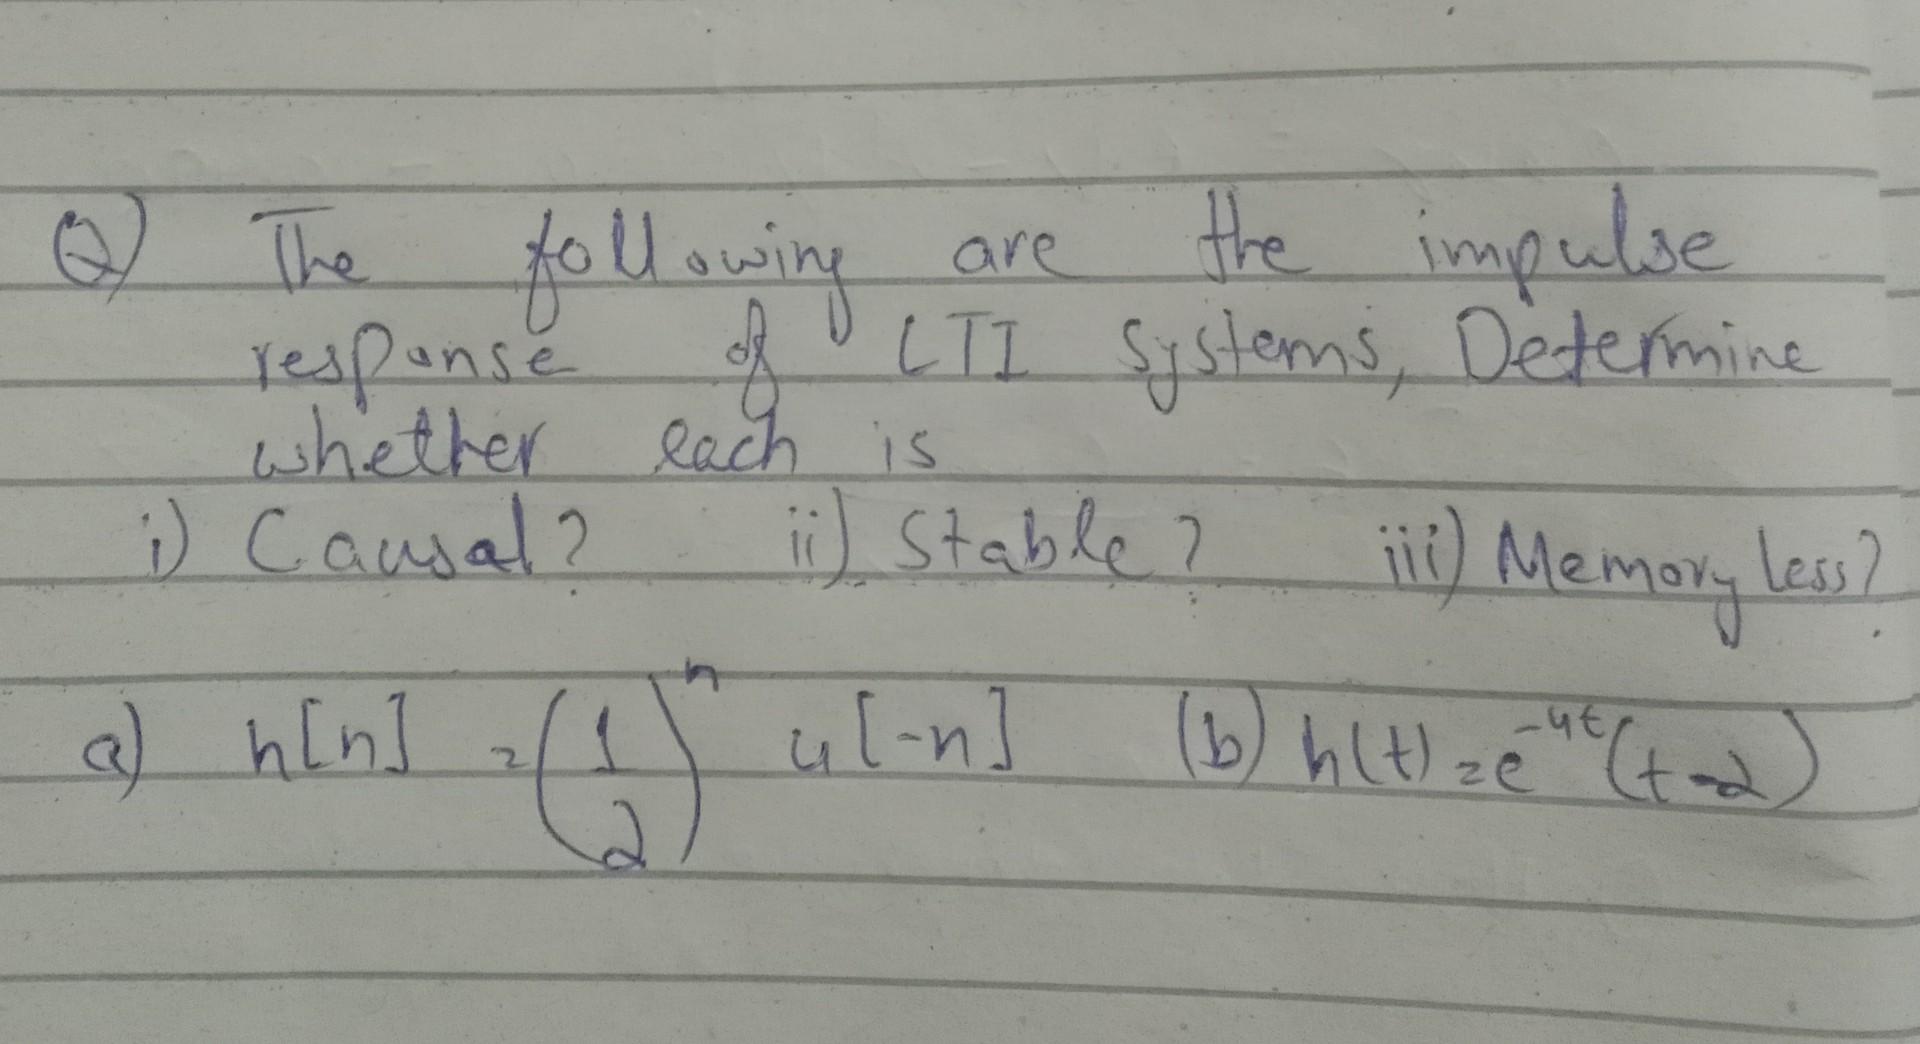 Q) The following are the impulse
response of LTI systems, Determine
whether each is
i) Causal? ii) Stable? iii) Memory less?
a) h[n] = (1/2)^n u[-n] (b) h(t) = e^-4t (t-2)